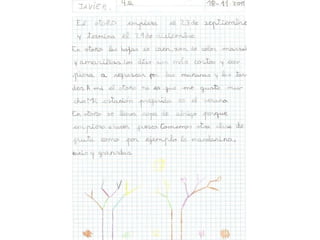 JAVIER. 4ª 18-11-2011
EL OTOÑO empieza el 23 de septiembre
y termina el 21 de diciembre.
En otoño las hojas se caen, son de color marrón
y amarillas, los días son más cortos y em-
pieza a refrescar por las mañanas y las tar-
des. A mí el otoño no es que me guste mu-
cho. Mi estación preferida es el verano.
En otoño se lleva ropa de abrigo porque
empieza a hacer fresco. Comemos otra clase de
fruta como por ejemplo la mandarina,
kaki y granadas.